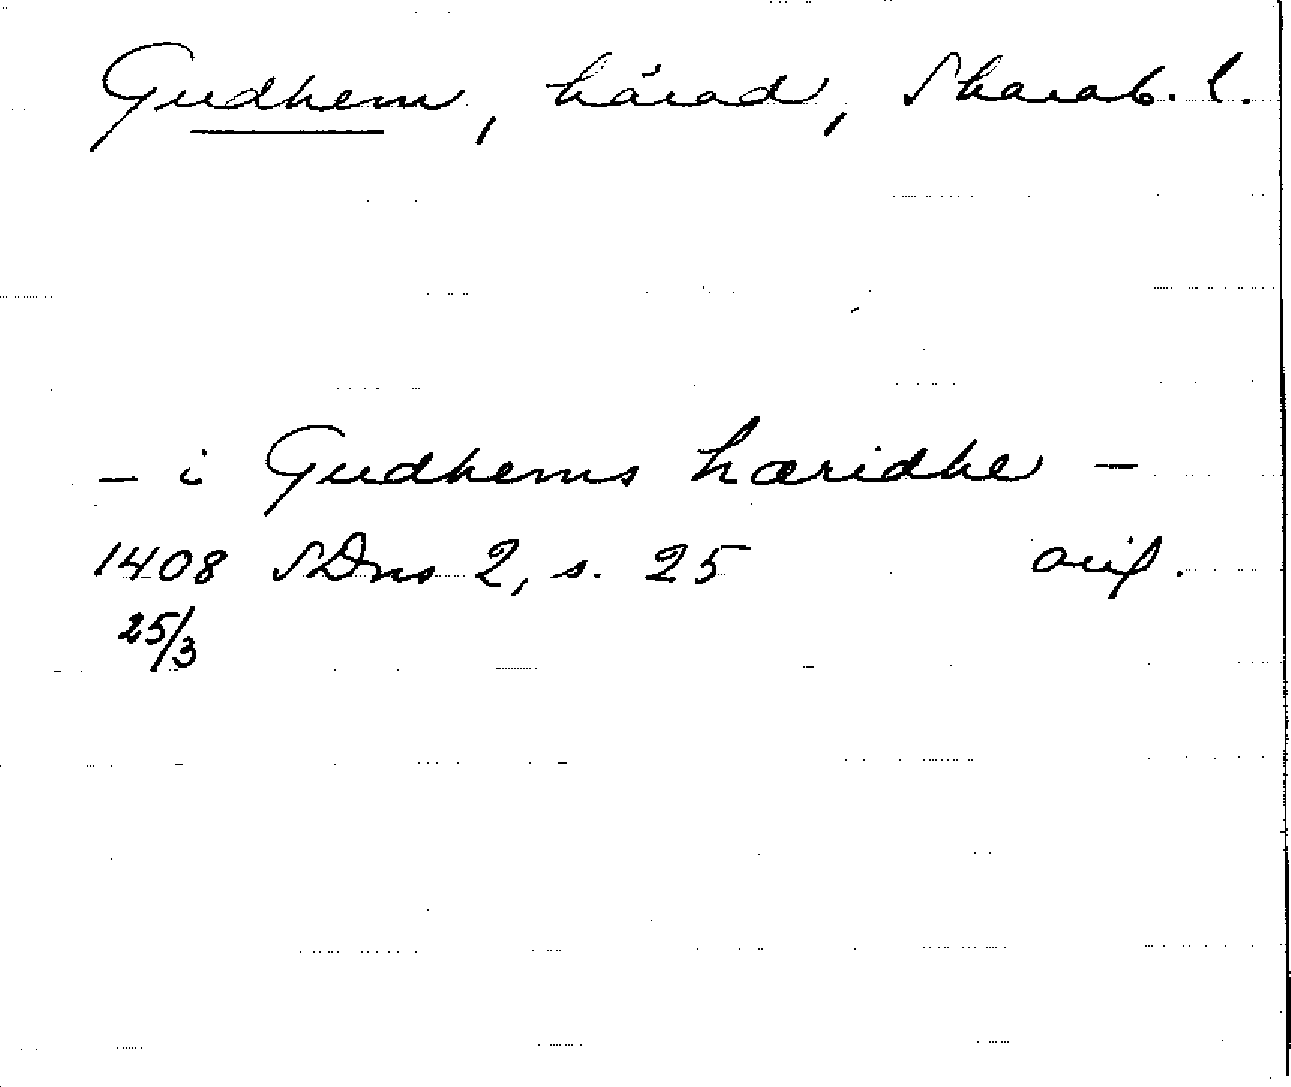 Gudhem, härad, Skarab. l.
- i Gudhems hæridhe -
1408 SDns 2, s. 25 orig.
25/3